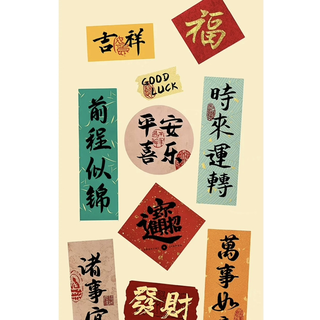 吉祥
福
GOOD
LUCK
前程似锦
平安
喜乐
時來運轉
招財進寶
萬事如
諸事
發財